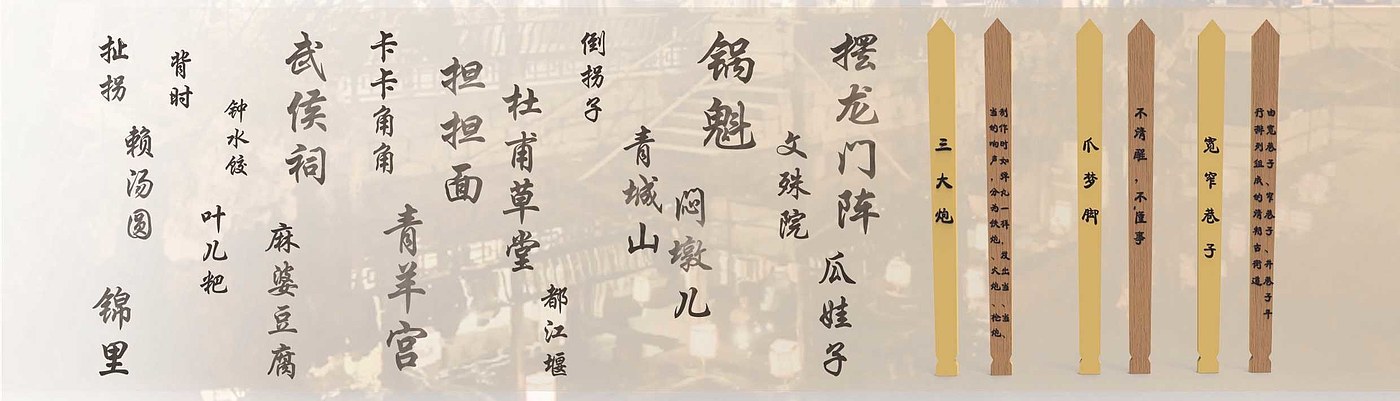 扯拐
背时
钟水饺
赖汤圆
叶儿粑
锦里
武侯祠
麻婆豆腐
卡卡角角
青羊宫
担担面
杜甫草堂
都江堰
倒拐子
青城山
闷墩儿
锅魁
文殊院
摆龙门阵
瓜娃子
三大炮
制作时如弹丸一样，发出当、当、
当的响声，分为铁炮、火炮、枪炮、
爪梦脚
不清醒，不懂事
宽窄巷子
由宽巷子、窄巷子、井巷子平
行排列组成的清朝古街道